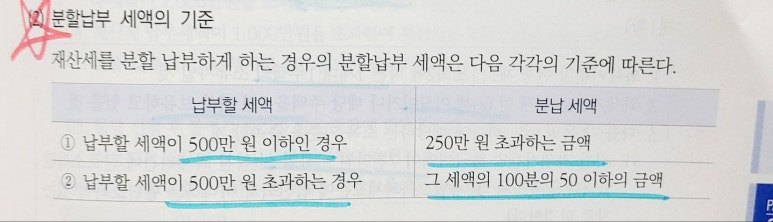 (2) 분할납부 세액의 기준
재산세를 분할 납부하게 하는 경우의 분할납부 세액은 다음 각각의 기준에 따른다.
납부할 세액 분납 세액
① 납부할 세액이 500만 원 이하인 경우 250만 원 초과하는 금액
② 납부할 세액이 500만 원 초과하는 경우 그 세액의 100분의 50 이하의 금액